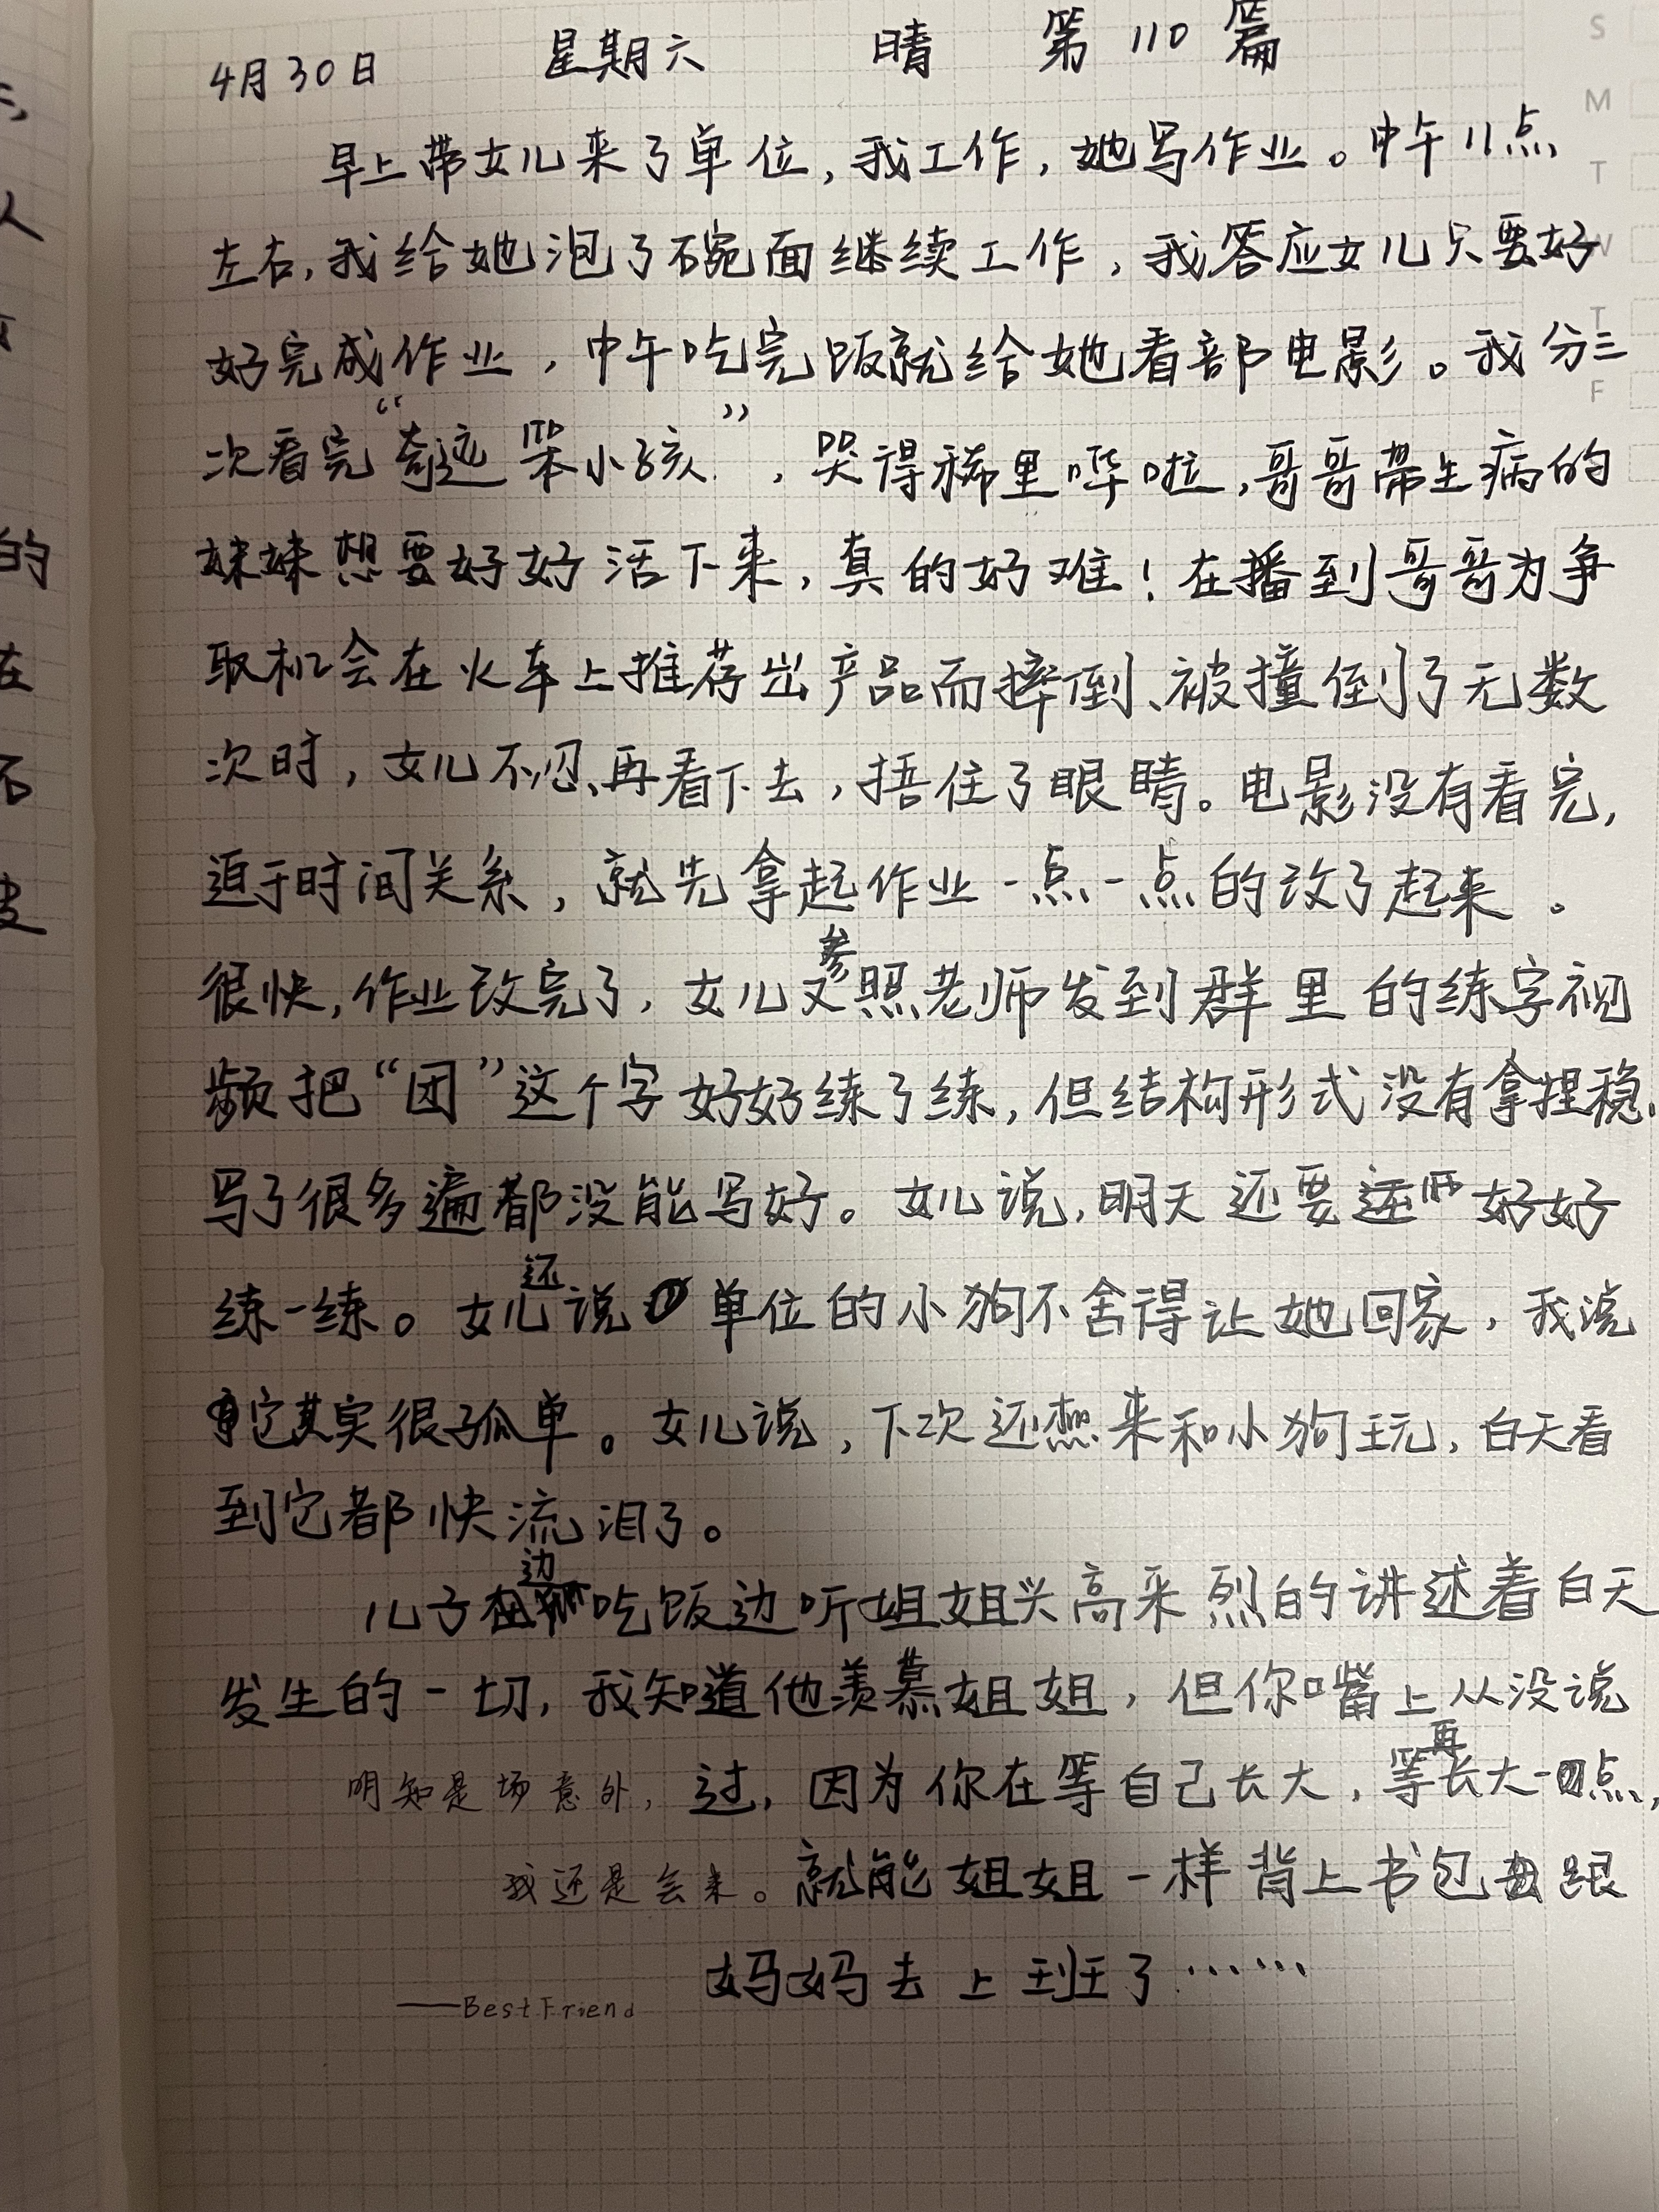 4月30日 星期六 晴 第110篇
早上带女儿来了单位,我工作,她写作业。中午11点
左右,我给她泡了碗面继续工作,我答应女儿只要好
好完成作业,中午吃完饭就给她看部电影。我分三
次看完“奇迹笨小孩”,哭得稀里哗啦,哥哥带生病的
妹妹想要好好活下来,真的好难!在播到哥哥为争
取机会在火车上推荐出产品而摔倒、被撞倒了无数
次时,女儿不忍再看下去,捂住了眼睛。电影没有看完,
迫于时间关系,就先拿起作业一点一点的改了起来。
很快,作业改完了,女儿又参照老师发到群里的练字视
频把“团”这个字好好练了练,但结构形式没有拿捏稳,
写了很多遍都没能写好。女儿说,明天还要好好
练一练。女儿还说单位的小狗不舍得让她回家,我说
它其实很孤单。女儿说,下次还想来和小狗玩,白天看
到它都快流泪了。
儿子边吃饭边听姐姐兴高采烈的讲述着白天
发生的一切,我知道他羡慕姐姐,但你嘴上从没说
过,因为你在等自己长大,等再长大一点,
就能姐姐一样背上书包跟
妈妈去上班了……
明知是场意外,
我还是会来。
——Best Friend
S
M
T
W
T
F
的
在
不